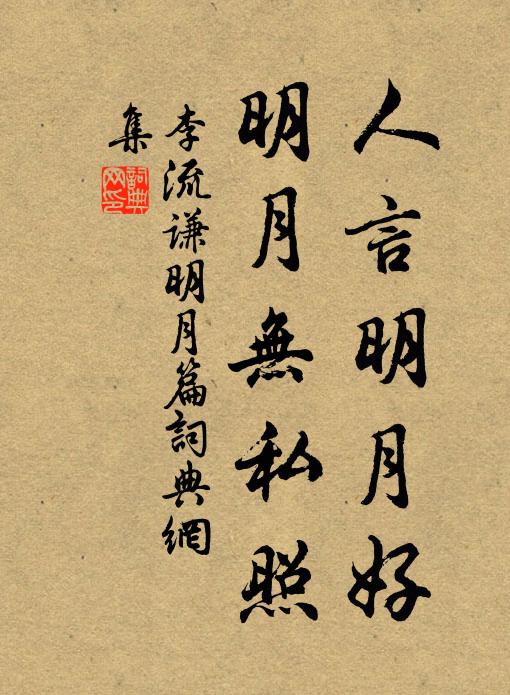 人言明月好
明月無私照
李流謙明月篇詞典網
集
詞典網印